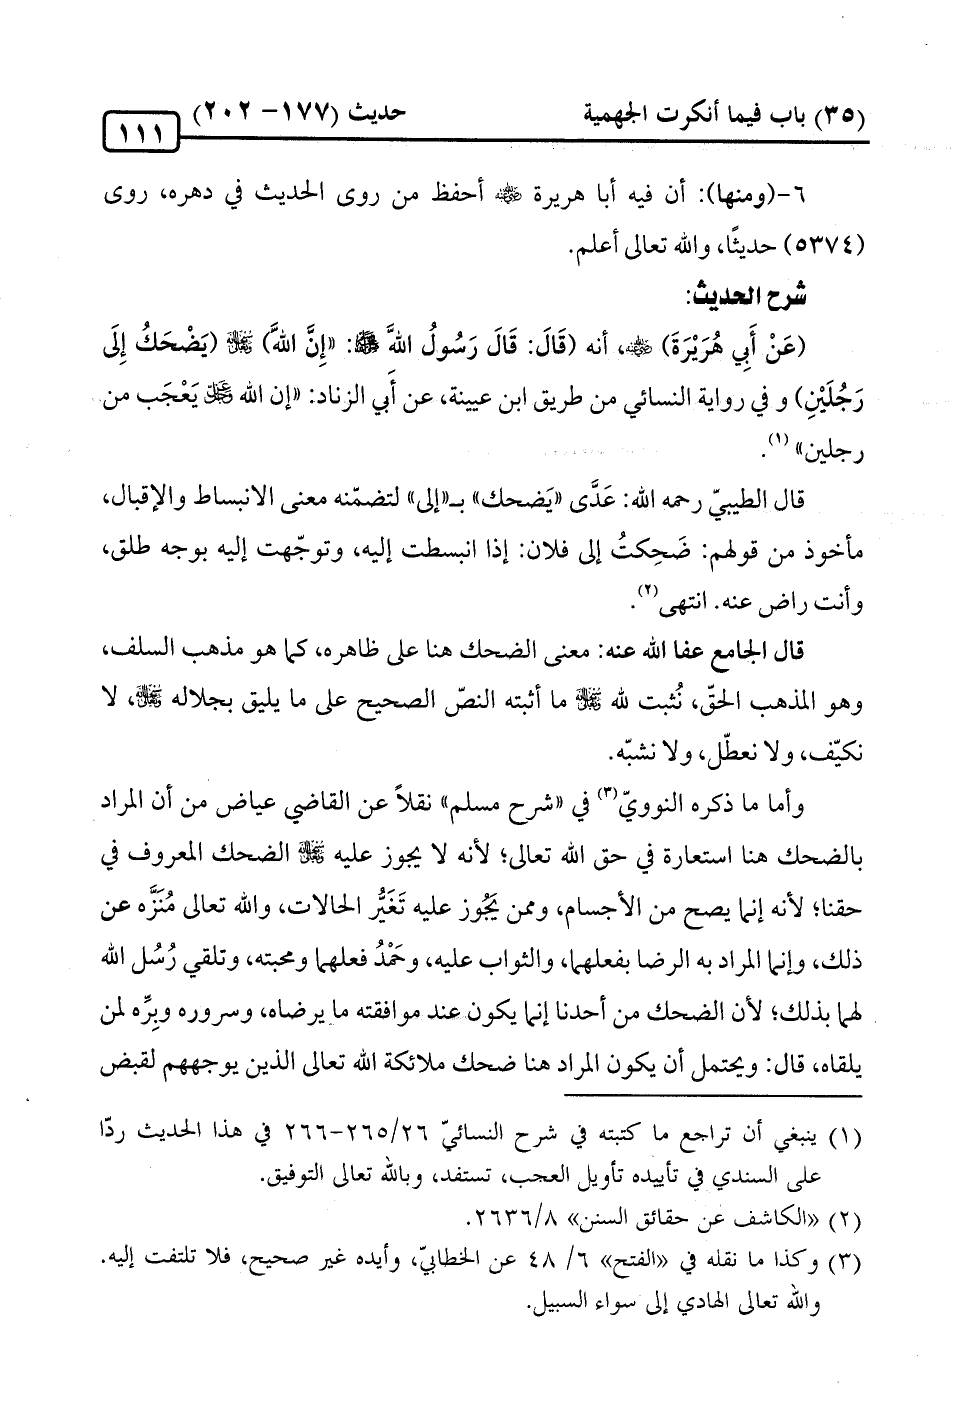 (٣٥) باب فيما أنكرت الجهمية حديث (١٧٧- ٢٠٢)
١١١
٦-(ومنها): أن فيه أبا هريرة رضي الله عنه أحفظ من روى الحديث في دهره، روى
(٥٣٧٤) حديثًا، والله تعالى أعلم.
شرح الحديث:
(عَنْ أَبِي هُرَيْرَةَ) رضي الله عنه، أنه (قَالَ: قَالَ رَسُولُ اللهِ ﷺ: «إِنَّ اللهَ) ﷻ (يَضْحَكُ إِلَى
رَجُلَيْنِ) و في رواية النسائي من طريق ابن عيينة، عن أبي الزناد: «إن الله عز وجل يَعْجَب من
رجلين» (١).
قال الطيبيّ رحمه الله: عَدَّى «يَضحك» بـ«إلى» لتضمّنه معنى الانبساط والإقبال،
مأخوذ من قولهم: ضَحِكتُ إلى فلان: إذا انبسطت إليه، وتوجّهت إليه بوجه طلق،
وأنت راض عنه. انتهى(٢).
قال الجامع عفا الله عنه: معنى الضحك هنا على ظاهره، كما هو مذهب السلف،
وهو المذهب الحقّ، نُثبت لله ﷻ ما أثبته النصّ الصحيح على ما يليق بجلاله ﷻ، لا
نكيّف، ولا نعطّل، ولا نشبّه.
وأما ما ذكره النوويّ(٣) في «شرح مسلم» نقلاً عن القاضي عياض من أن المراد
بالضحك هنا استعارة في حق الله تعالى؛ لأنه لا يجوز عليه ﷻ الضحك المعروف في
حقنا؛ لأنه إنما يصح من الأجسام، وممن يَجُوز عليه تَغَيُّر الحالات، والله تعالى مُنَزَّه عن
ذلك، وإنما المراد به الرضا بفعلهما، والثواب عليه، وحَمْدُ فعلهما ومحبته، وتلقي رُسُل الله
لهما بذلك؛ لأن الضحك من أحدنا إنما يكون عند موافقته ما يرضاه، وسروره وبِرِّه لمن
يلقاه، قال: ويحتمل أن يكون المراد هنا ضحك ملائكة الله تعالى الذين يوجههم لقبض
(١) ينبغي أن تراجع ما كتبته في شرح النسائيّ ٢٦/ ٢٦٥-٢٦٦ في هذا الحديث ردّا
على السندي في تأييده تأويل العجب، تستفد، وبالله تعالى التوفيق.
(٢) «الكاشف عن حقائق السنن» ٨/ ٢٦٣٦.
(٣) وكذا ما نقله في «الفتح» ٦/ ٤٨ عن الخطابيّ، وأيده غير صحيح، فلا تلتفت إليه.
والله تعالى الهادي إلى سواء السبيل.